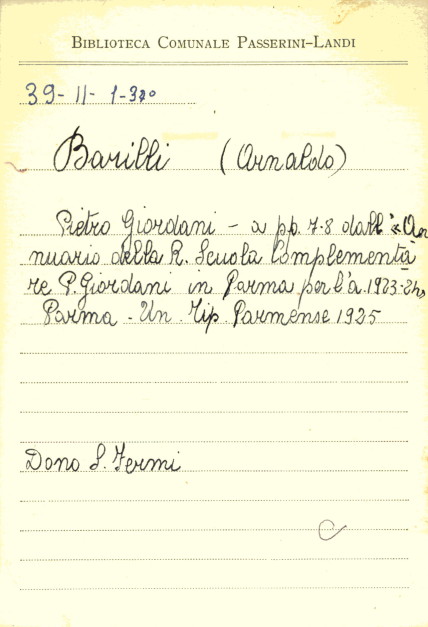 BIBLIOTECA COMUNALE PASSERINI-LANDI
39-11-1-32º
Barilli (Arnaldo)
Pietro Giordani - a pp. 7-8 dall'«An
nuario della R. Scuola Complementa
re P. Giordani in Parma per l'a. 1923-24»
Parma - Un. Tip. Parmense 1925
Dono S. Fermi
C